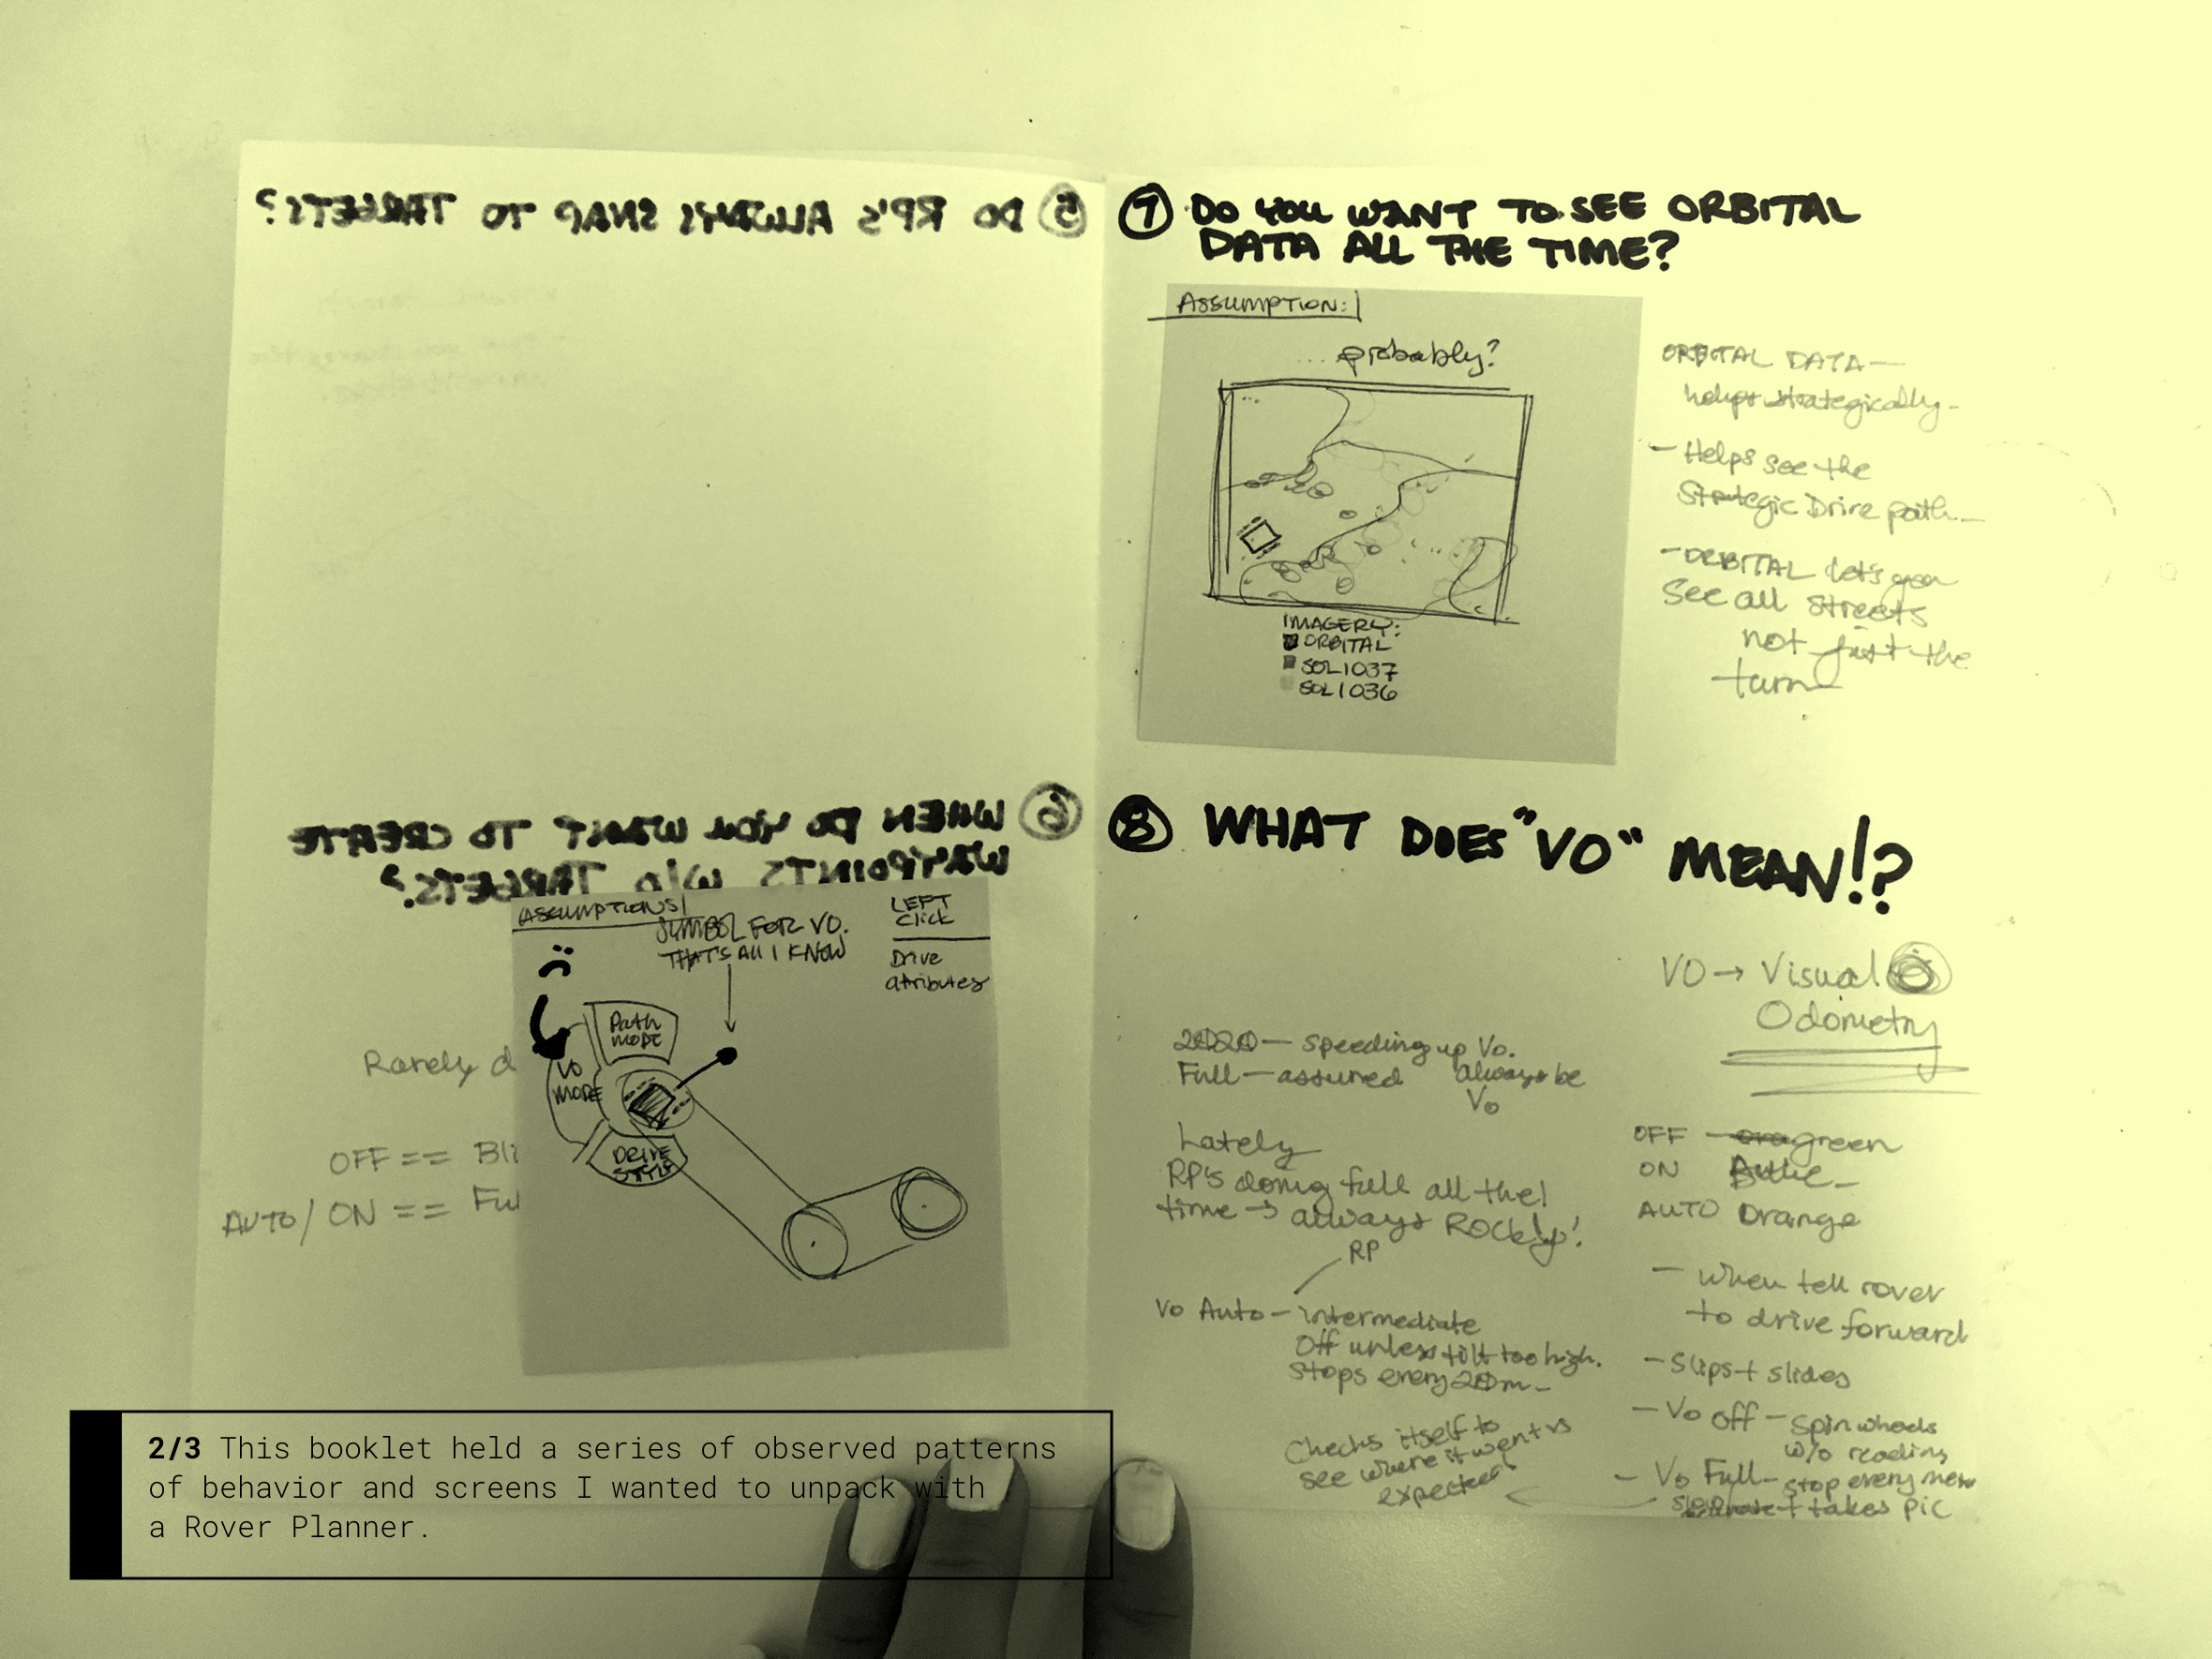 ⑤ DO RP'S ALWAYS SNAP TO TARGETS?
⑥ WHEN DO YOU WANT TO CREATE
WAYPOINTS W/O TARGETS?
Rarely d
OFF == Bli
AUTO/ON == Ful
ASSUMPTIONS
SYMBOL FOR VO.
THAT'S All I KNOW
LEFT
Click
Drive
atributes
Path
MODE
VO
MODE
DRIVE
STYLE
⑦ DO YOU WANT TO SEE ORBITAL
DATA ALL THE TIME?
ASSUMPTION:
... probably?
IMAGERY:
ORBITAL
SOL 1037
SOL 1036
ORBITAL DATA—
helps strategically-
- Helps see the
Strategic Drive path-
- ORBITAL let's you
See all streets
not just the
turn
⑧ WHAT DOES "VO" MEAN!?
VO → Visual
Odometry
2020 — speeding up Vo.
Full — assured always be
Vo
Lately
RP's doing full all the
time → always Rocky!
RP
Vo Auto - intermediate
Off unless tilt too high.
Stops every 20m-
Checks itself to
see where it went vs
expected
OFF — green
ON
AUTO Orange
- when tell rover
to drive forward
- Slips + slides
- Vo off - Spin wheels
w/o reading
- Vo Full - stop every
+ takes pic
2/3 This booklet held a series of observed patterns
of behavior and screens I wanted to unpack with
a Rover Planner.